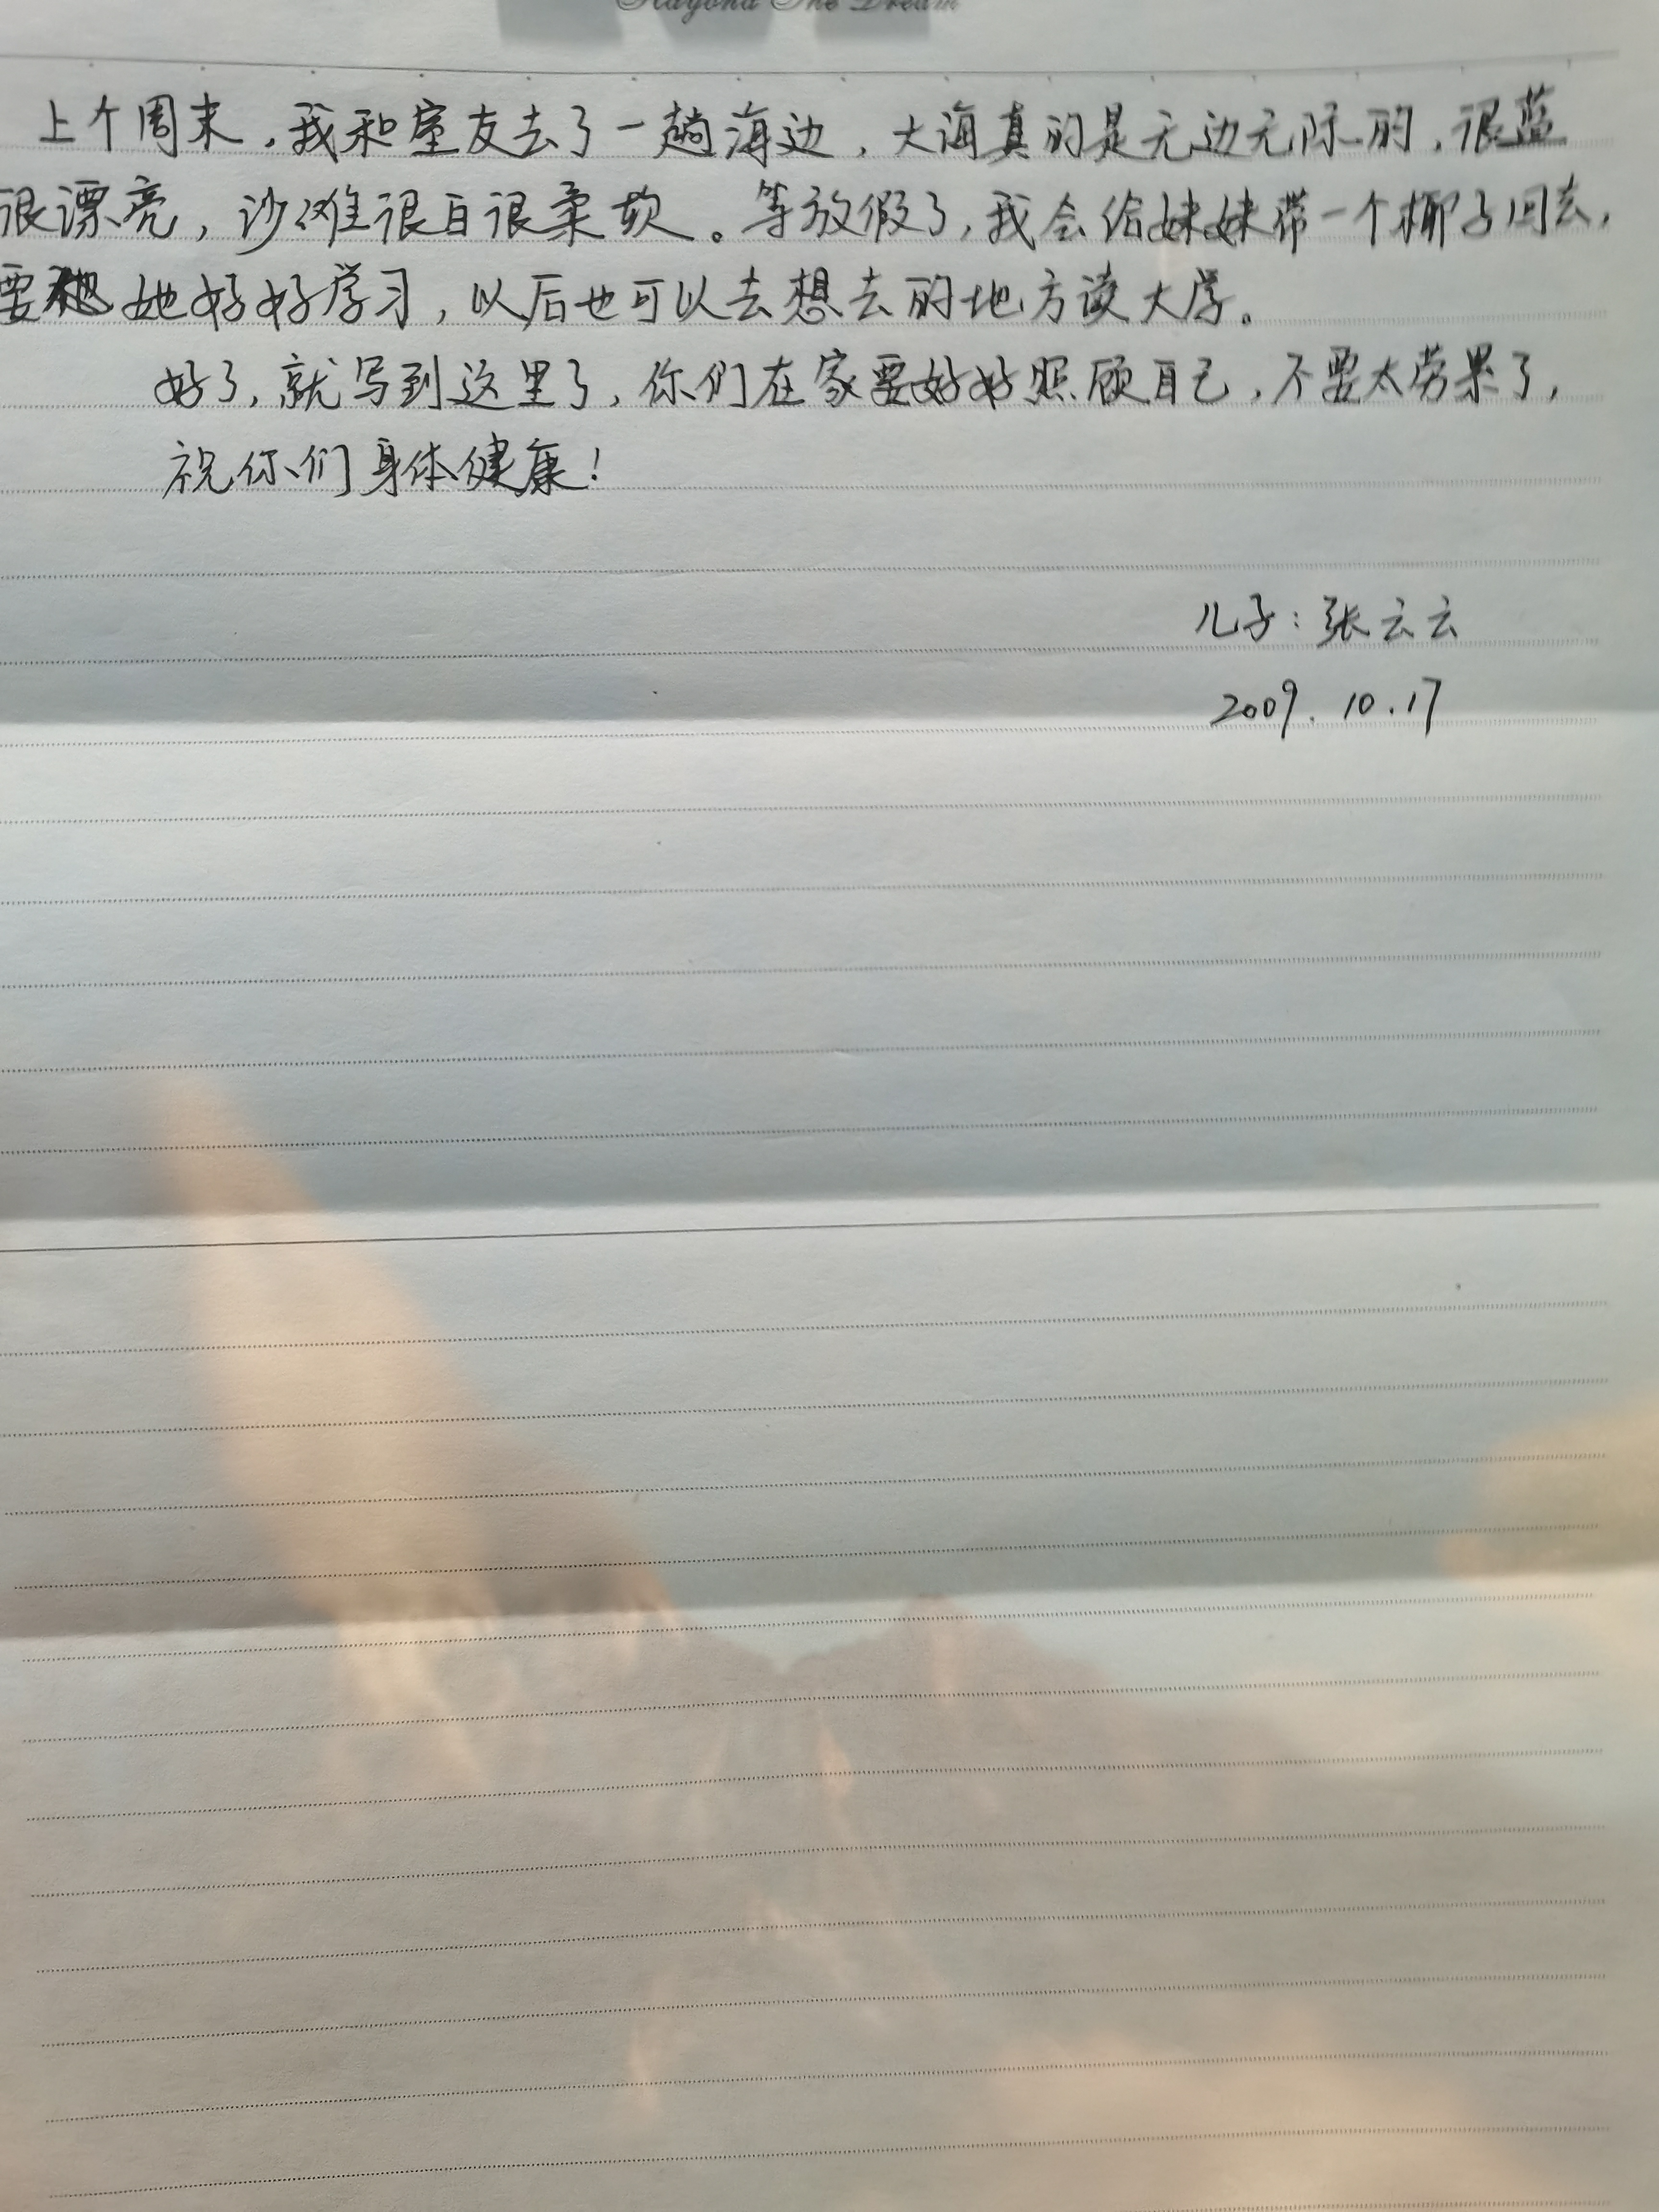 The Dream
上个周末，我和室友去了一趟海边，大海真的是无边无际的，很蓝
很漂亮，沙滩很白很柔软。等放假了，我会给妹妹带一个椰子回去，
要她好好学习，以后也可以去想去的地方读大学。
好了，就写到这里了，你们在家要好好照顾自己，不要太劳累了，
祝你们身体健康！
儿子：张云云
2009.10.17